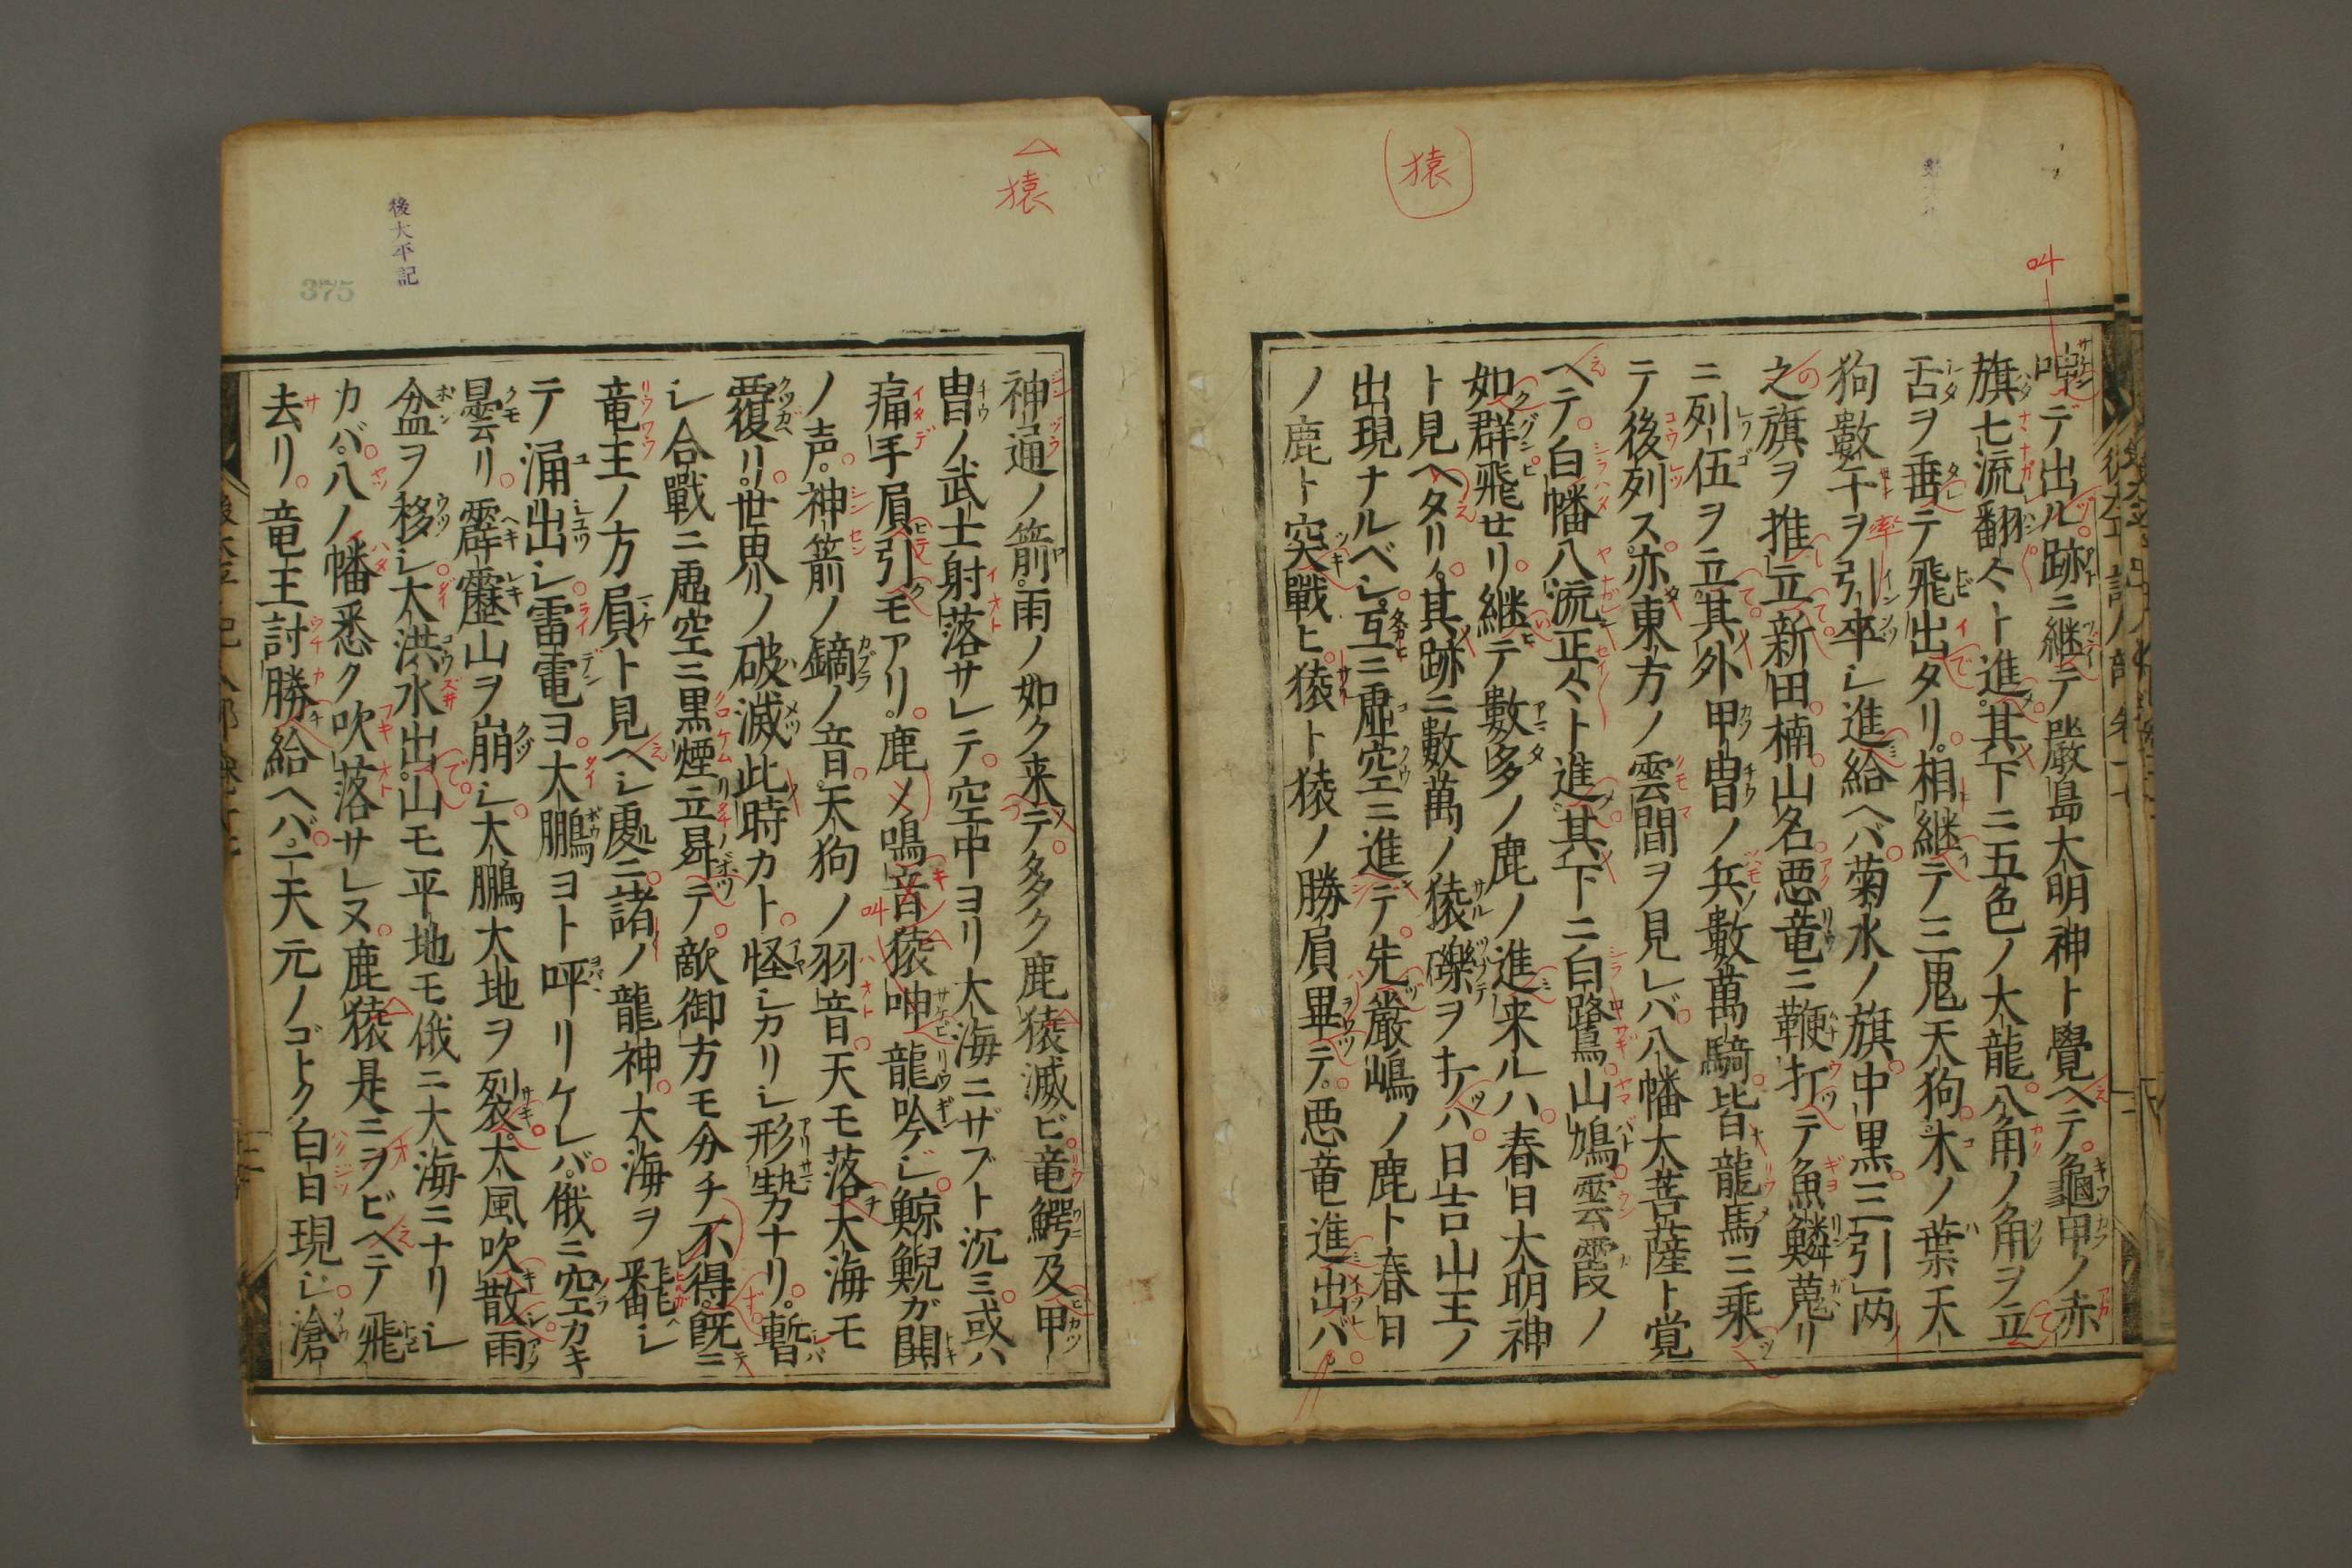 猿
叫
㗅デ出ル跡ニ継テ嚴島大明神ト覺ヘテ龜甲ノ赤
旗七流翻々ト進其下ニ五色ノ大龍八角ノ角ヲ立
舌ヲ垂テ飛出タリ相継テ三鬼天狗木ノ葉天
狗數千ヲ引卒シ進給ヘバ菊水ノ旗中黒三引両
之旗ヲ推立新田楠山名悪竜ニ鞭打テ魚鱗蒐リ
ニ列伍ヲ立其外甲冑ノ兵數萬騎皆龍馬ニ乘
テ後列ス亦東方ノ雲間ヲ見レバ八幡大菩薩ト覚
ヘテ白幡八流正々ト進其下ニ白鷺山鳩雲霞ノ
如群飛セリ継テ數多ノ鹿ノ進来ルハ春日大明神
ト見ヘタリ其跡ニ數萬ノ猿礫ヲ打ハ日吉山王ノ
出現ナルベシ互ニ虚空ニ進デ先嚴嶋ノ鹿ト春日
ノ鹿ト突戰ヒ猿ト猿ノ勝屓畢テ悪竜進出バ
猿
後太平記
375
神通ノ箭雨ノ如ク来テ多ク鹿猿滅ビ竜鰐及甲
冑ノ武士射落サレテ空中ヨリ大海ニザブト沉ミ或ハ
痛手屓引モアリ鹿ノ鳴音猿呻龍吟シ鯨鯢ガ鬨
ノ声神箭ノ鏑ノ音天狗ノ羽音天モ落大海モ
覆リ世界ノ破滅此時カト怪シカリシ形勢ナリ暫
シ合戰ニ虚空ニ黒煙立昇テ敵御方モ分チ不得既ニ
竜王ノ方屓ト見ヘシ處ニ諸ノ龍神大海ヲ飜シ
テ涌出シ雷電ヨ大鵬ヨト呼リケレバ俄ニ空カキ
曇リ霹靂山ヲ崩シ大鵬大地ヲ裂大風吹散雨
盆ヲ移シ大洪水出山モ平地モ俄ニ大海ニナリシ
カバ八ノ幡悉ク吹落サレヌ鹿猿是ニヲビヘテ飛
去リ竜王討勝給ヘバ一天元ノゴトク白日現シ滄